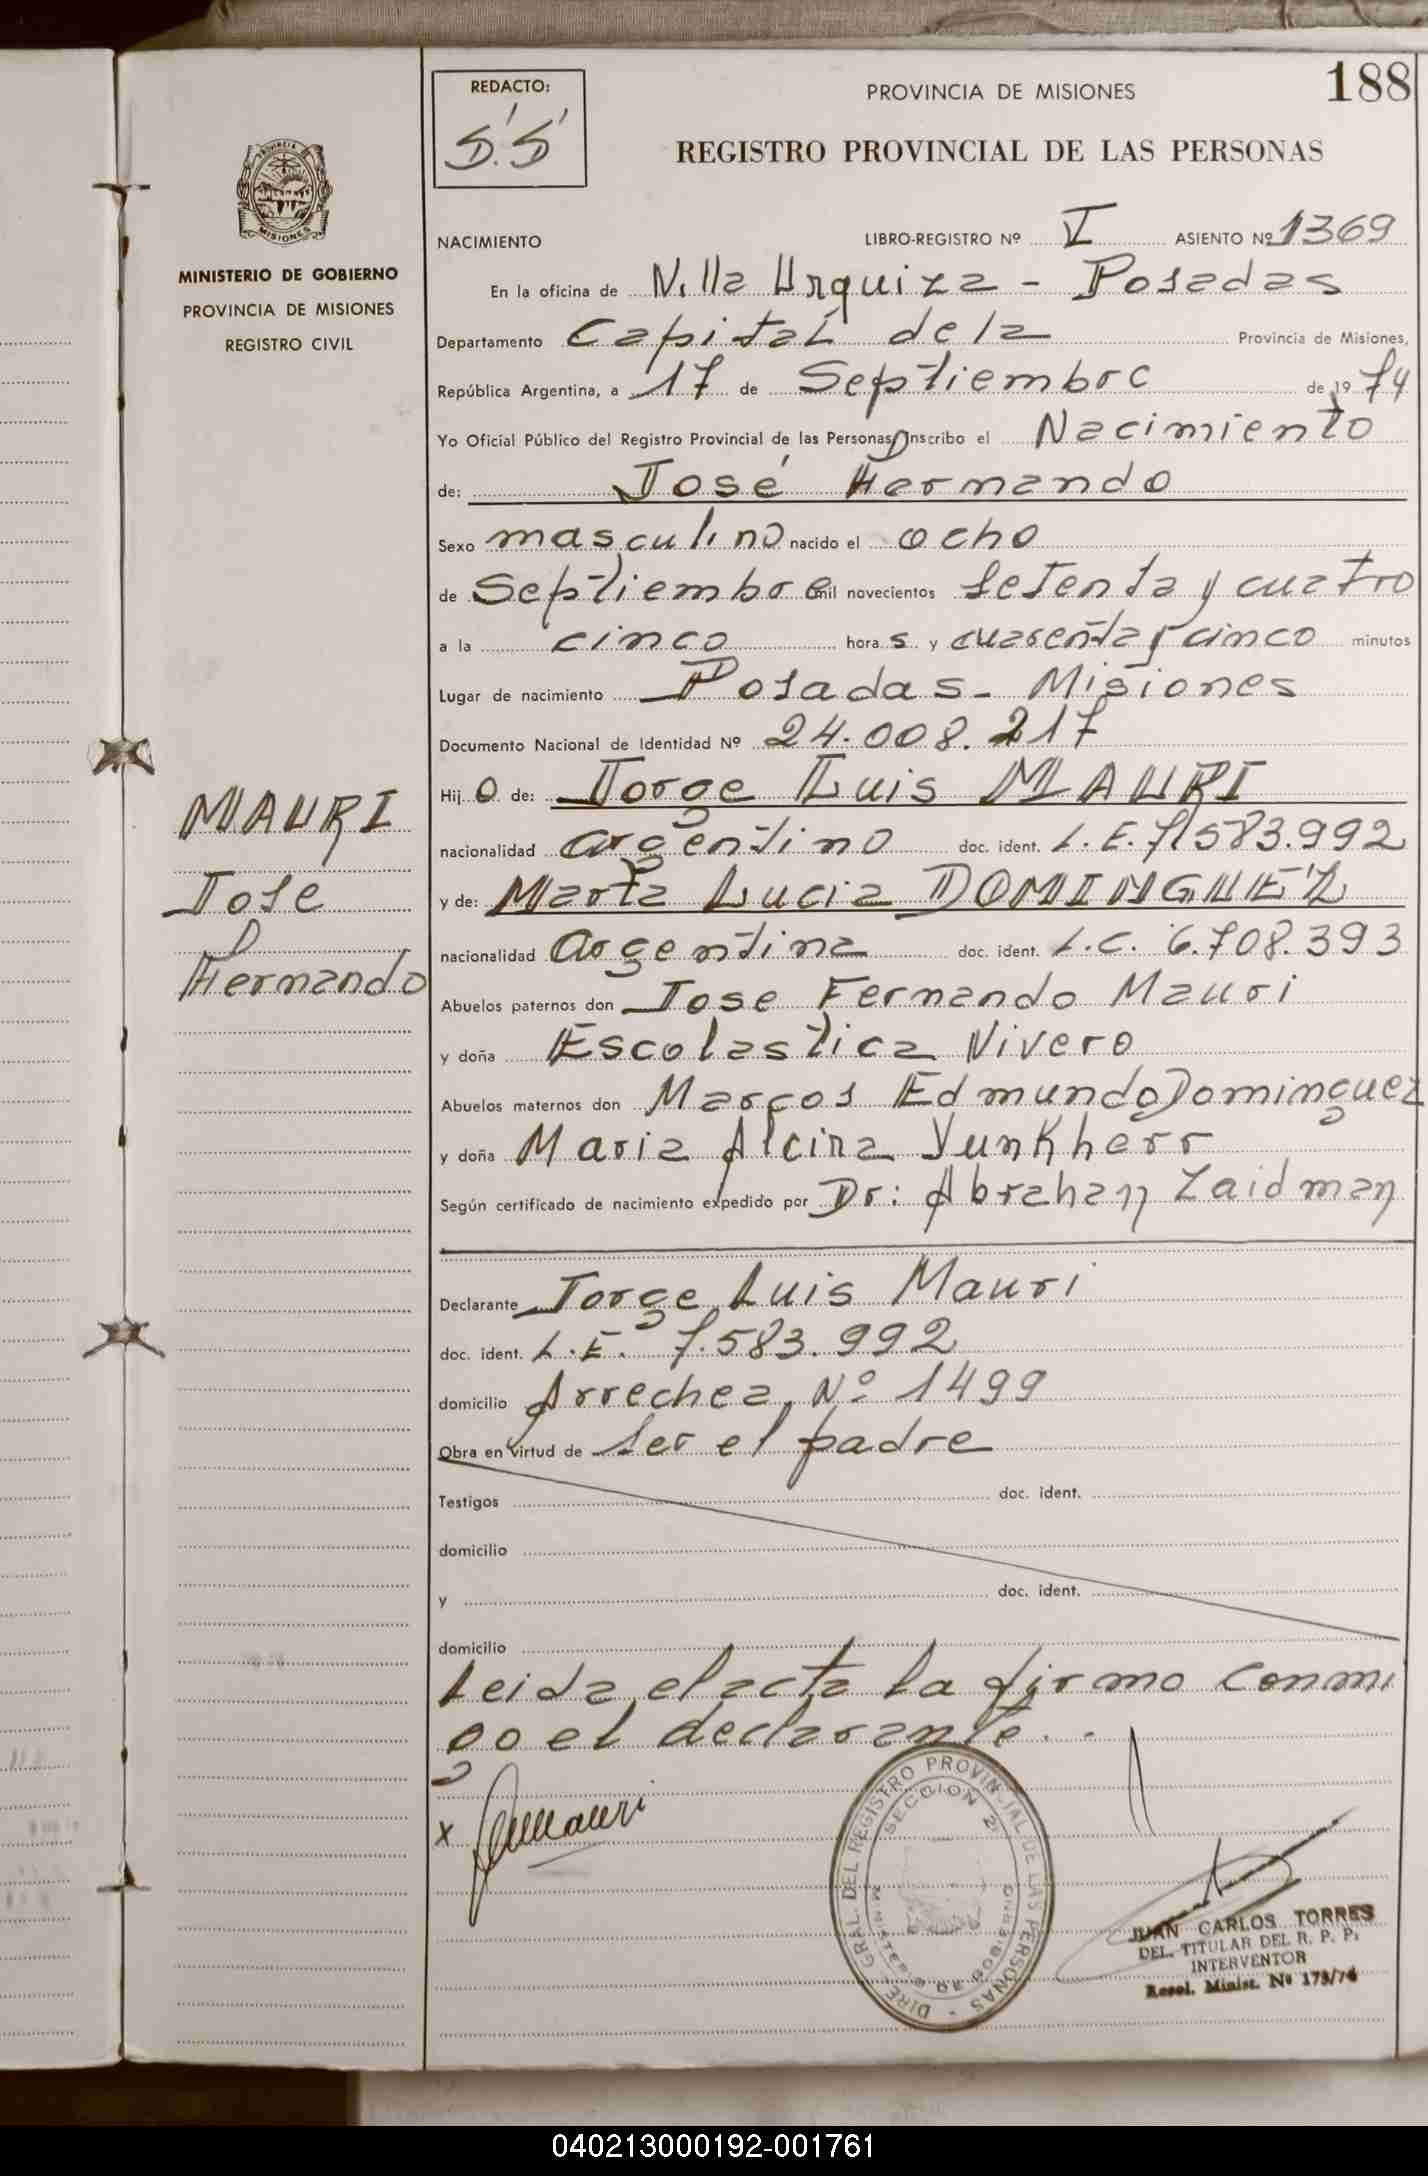 188
REDACTO:
D'D'
PROVINCIA DE MISIONES
REGISTRO PROVINCIAL DE LAS PERSONAS
PROVINCIA DE
MISIONES
MINISTERIO DE GOBIERNO
PROVINCIA DE MISIONES
REGISTRO CIVIL
MAURI
Jose
Hernando
NACIMIENTO LIBRO-REGISTRO Nº V ASIENTO Nº 1369
En la oficina de Villa Urquiza - Posadas
Departamento Capital de la Provincia de Misiones,
República Argentina, a 17 de Septiembre de 1974
Yo Oficial Público del Registro Provincial de las Personas, Inscribo el Nacimiento
de: José Hernando
Sexo masculino nacido el ocho
de Septiembre mil novecientos setenta y cuatro
a la cinco horas y cuarenta y cinco minutos
Lugar de nacimiento Posadas - Misiones
Documento Nacional de Identidad Nº 24.008.217
Hijo de: Jorge Luis MAURI
nacionalidad argentino doc. ident. L.E. 7.583.992
y de: Marta Lucia DOMINGUEZ
nacionalidad Argentina doc. ident. L.C. 6.708.393
Abuelos paternos don Jose Fernando Mauri
y doña Escolastica Vivero
Abuelos maternos don Marcos Edmundo Dominguez
y doña Maria Alcira Yunkherr
Según certificado de nacimiento expedido por Dr: Abrahan Zaidman
Declarante Jorge Luis Mauri
doc. ident. L.E. 7.583.992
domicilio Arrechea Nº 1499
Obra en virtud de ser el padre
Testigos doc. ident.
domicilio
y doc. ident.
domicilio
Leida el acta la firmo conmi
go el declarante..
x Mauri
DIRE. GRAL. DEL REGISTRO PROVINCIAL DE LAS PERSONAS -
SECCION 2ª
MINISTERIO DE GOBIERNO
JUAN CARLOS TORRES
DEL. TITULAR DEL R. P. P.
INTERVENTOR
Resol. Minist. Nº 173/74
040213000192-001761